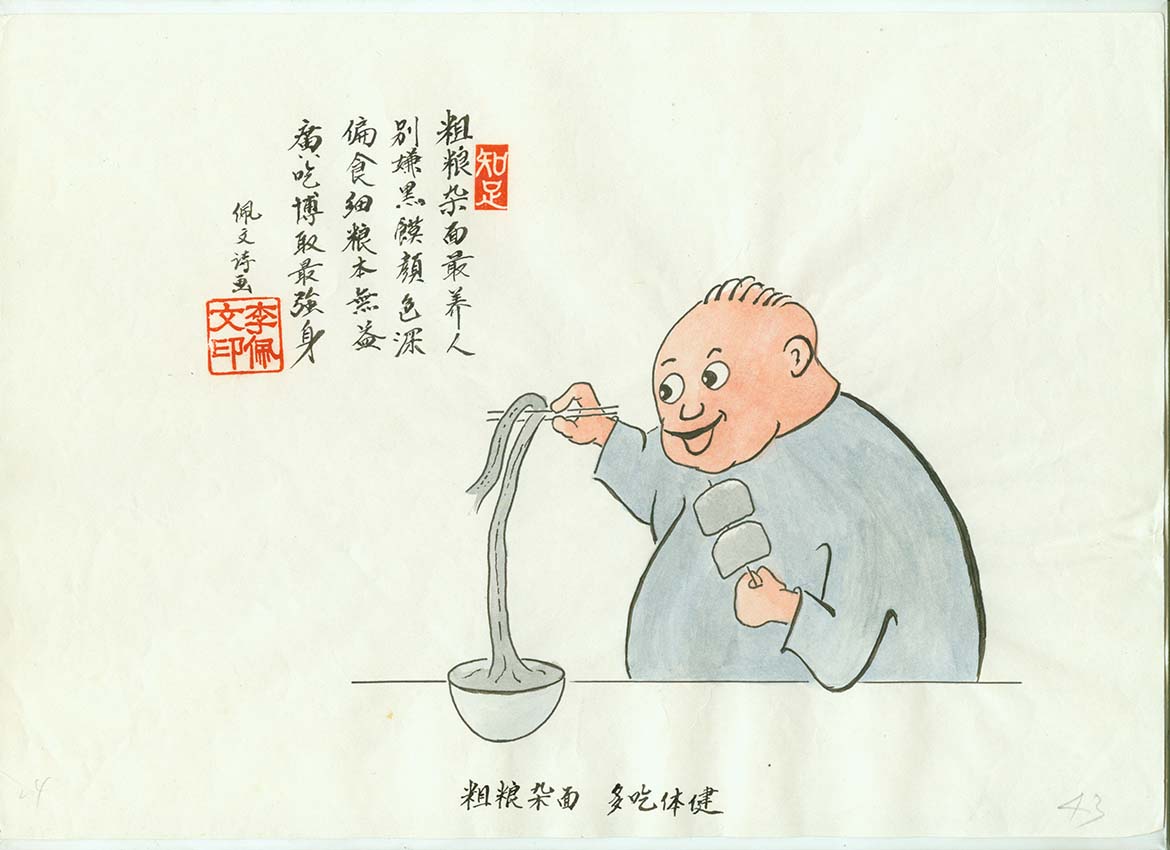 知足
粗粮杂面最养人
别嫌黑馍颜色深
偏食细粮本無益
廣吃博取最强身
佩文诗画
李佩文印
粗粮杂面 多吃体健
43